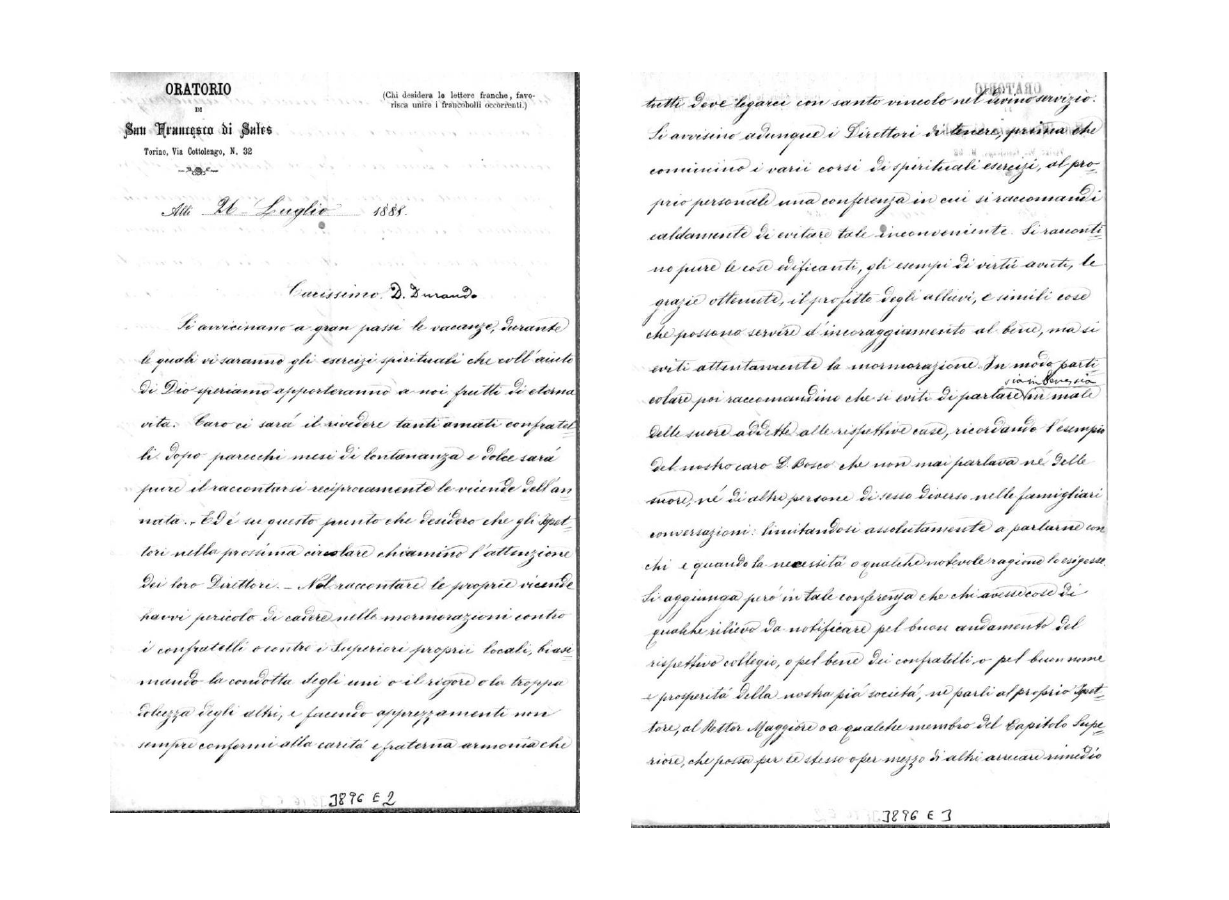 ORATORIO
DI
San Francesco di Sales
Torino, Via Cottolengo, N. 32
(Chi desidera le lettere franche, favo-
risca unire i francobolli occorrenti.)
Luglio 1888.
Carissimo D. Durando
Si avvicinano a gran passi le vacanze, durante
le quali vi saranno gli esercizi spirituali che coll'aiuto
di Dio speriamo apporteranno a noi frutti di eterna
vita. Caro ci sará il rivedere tanti amati confratel=
li dopo parecchi mesi di lontananza e dolce sará
pure il raccontarsi reciprocamente le vicende dell'an=
nata. Ed é su questo punto che desidero che gli Ispet=
tori nella prossima circolare chiamino l'attenzione
dei loro Direttori. – Nel raccontare le proprie vicende
havvi pericolo di cadere nelle mormorazioni contro
i confratelli o contro i Superiori proprii locali, biasi=
mando la condotta degli uni o il rigore o la troppa
dolcezza degli altri, e facendo apprezzamenti non
sempre conformi alla caritá e fraterna armonia che
J896 E 2
tutti deve legarci con santo vincolo nel divino servizio.
Si avvisino adunque i Direttori di tenere, prima che
comincino i varii corsi di spirituali esercizi, al pro=
prio personale una conferenza in cui si raccomandi
caldamente di evitare tale inconveniente. Si racconti=
no pure le cose edificanti, gli esempi di virtú avuti, le
grazie ottenute, il profitto degli allievi, e simili cose
che possono servire d'incoraggiamento al bene, ma si
eviti attentamente la mormorazione. In modo parti
colare poi raccomandino che si eviti di parlare sia in bene, sia in male
delle suore addette alle rispettive case, ricordando l'esempio
del nostro caro D. Bosco che non mai parlava né delle
suore, né di altre persone di sesso diverso nelle famigliari
conversazioni: limitandosi assolutamente a parlarne con
chi e quando la necessitá o qualche notevole ragione lo esigesse.
Si aggiunga peró in tale conferenza che chi avesse cose di
qualche rilievo da notificare pel buon andamento del
rispettivo collegio, o pel bene dei confratelli, o pel buon nome
e prosperitá della nostra pia societá, ne parli al proprio Ispet=
tore, al Rettor Maggiore o a qualche membro del Capitolo Supe=
riore, che possa per se stesso o per mezzo di altri arrecare rimedio
J896 E 3